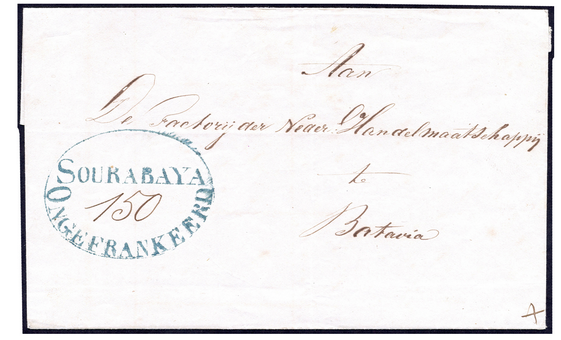 Aan
De Factorij der Neder. Handelmaatschappij
te
Batavia
SOURABAYA
150
ONGEFRANKEERD